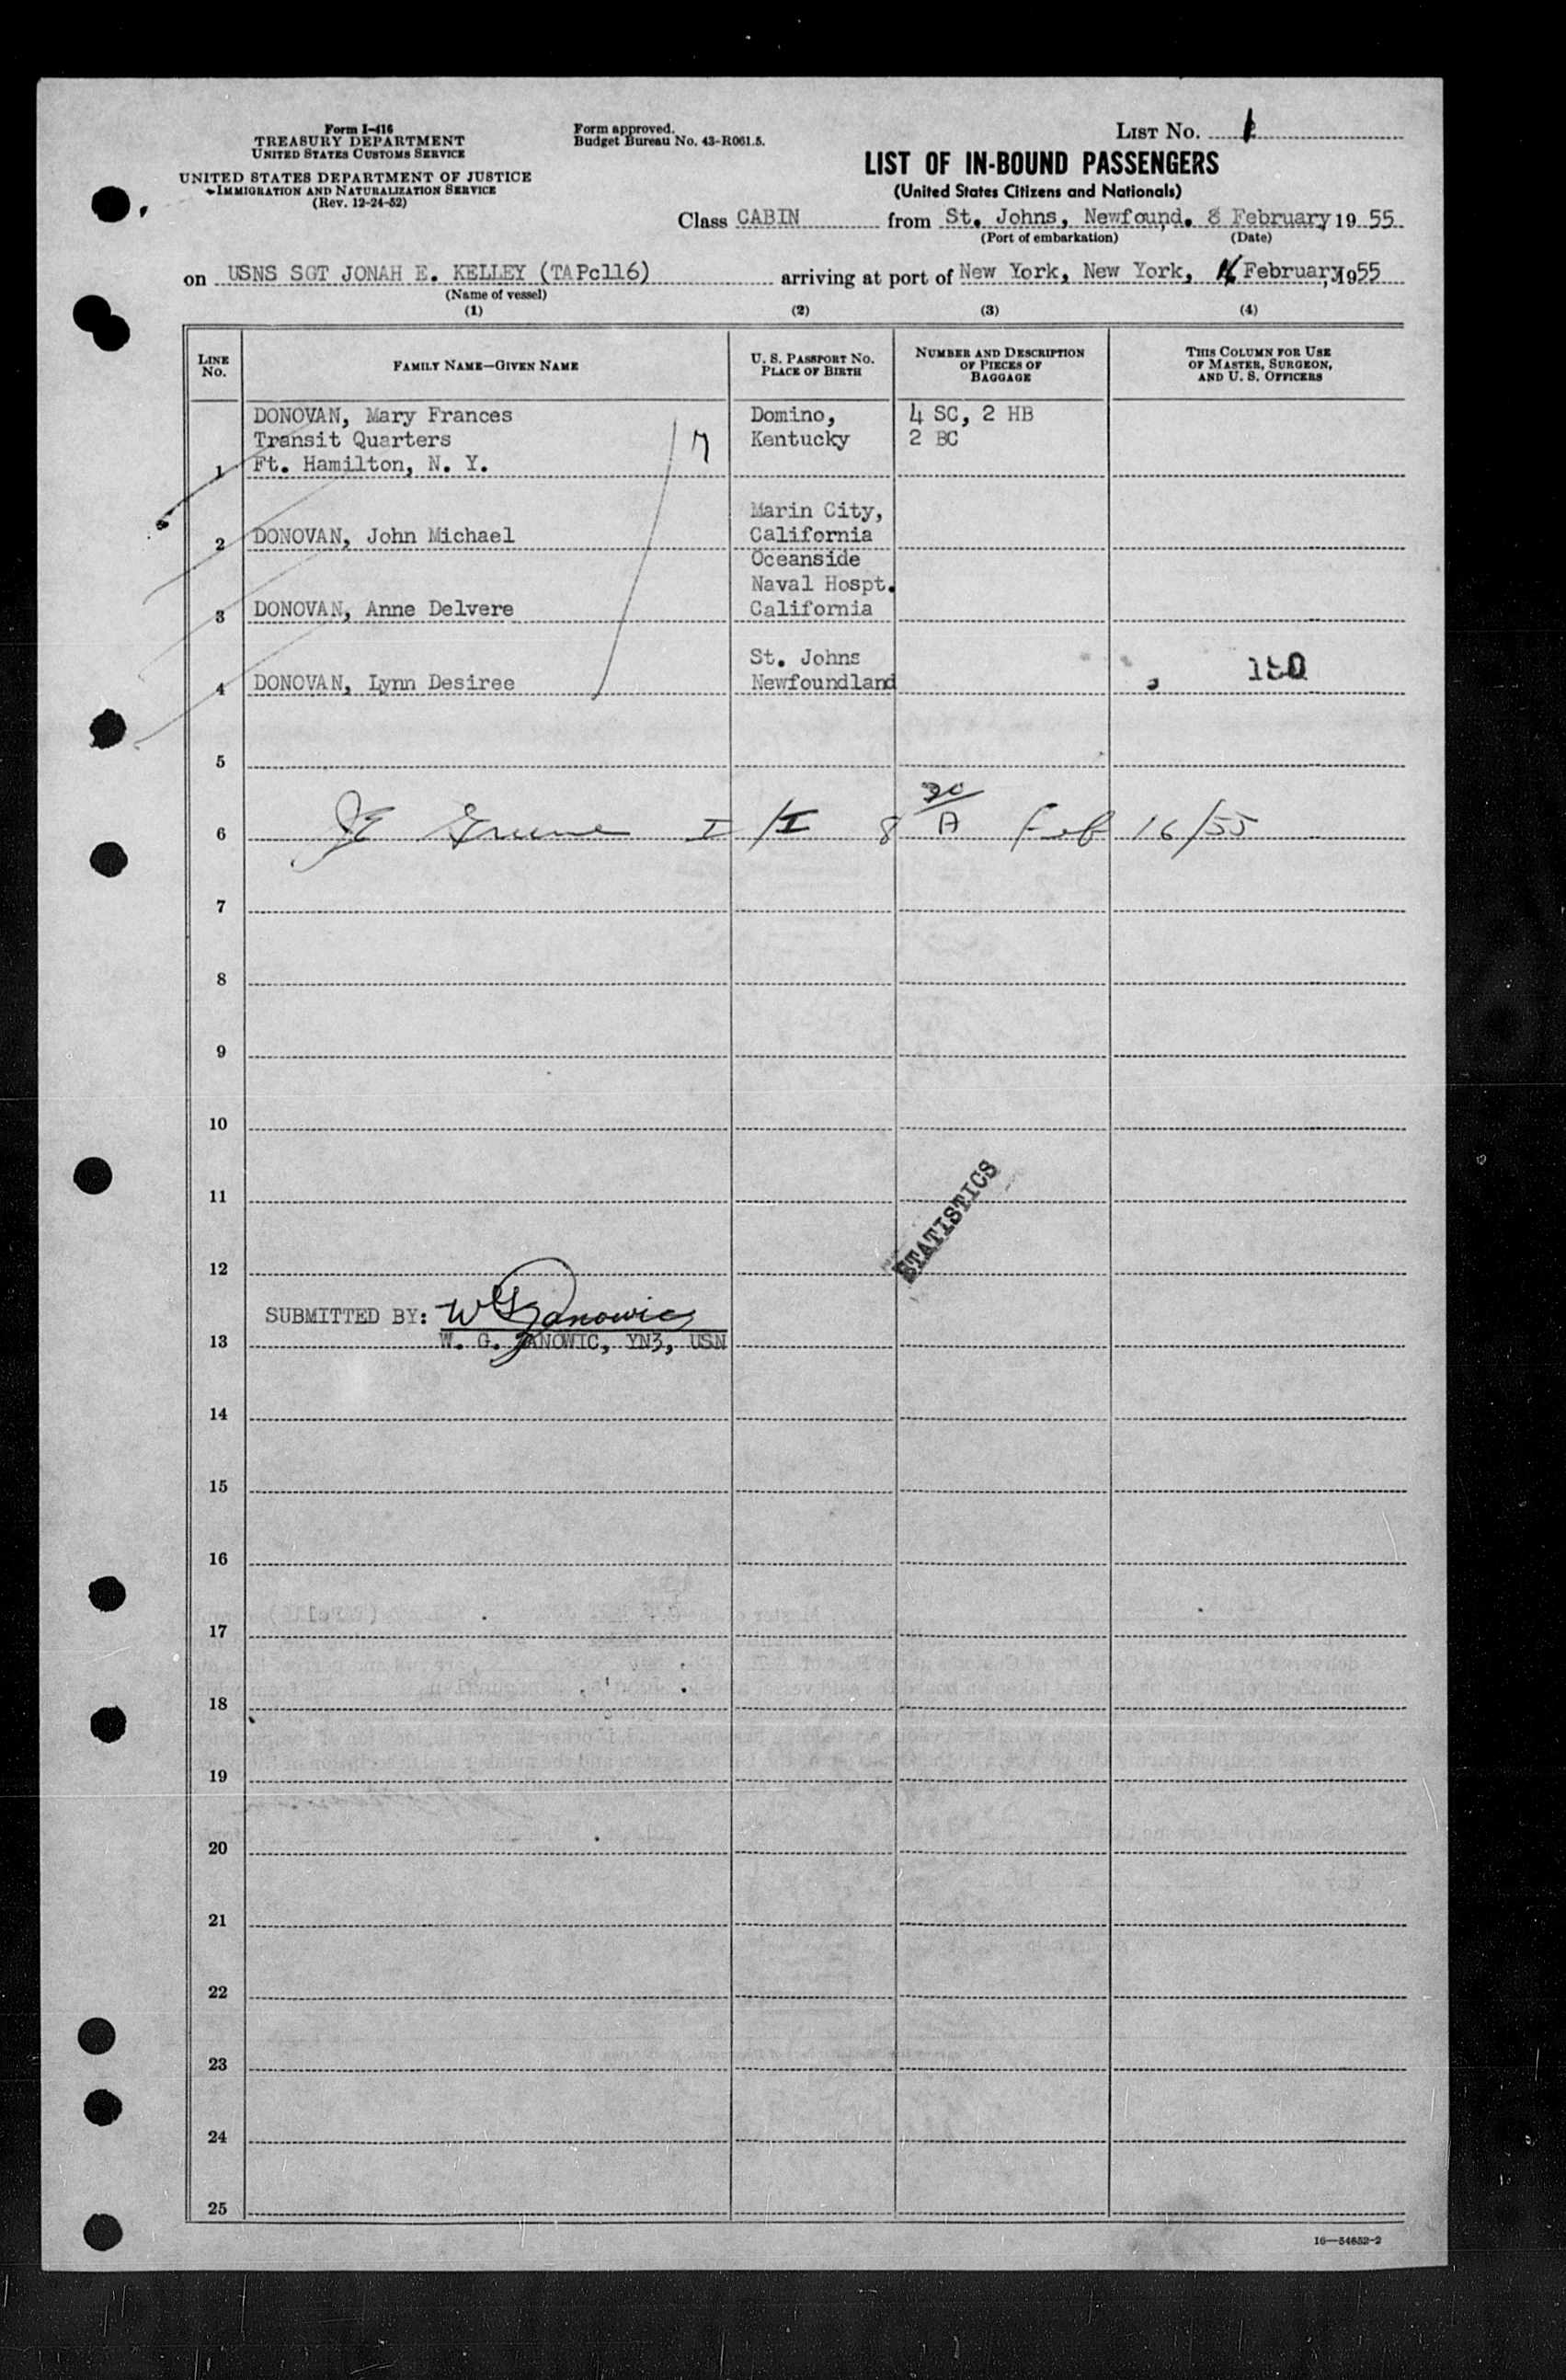 Form I-416
TREASURY DEPARTMENT
UNITED STATES CUSTOMS SERVICE
UNITED STATES DEPARTMENT OF JUSTICE
IMMIGRATION AND NATURALIZATION SERVICE
(Rev. 12-24-52)
Form approved.
Budget Bureau No. 43-R061.5.
LIST No. 1
LIST OF IN-BOUND PASSENGERS
(United States Citizens and Nationals)
Class CABIN from St. Johns, Newfound. 8 February, 19 55
(Port of embarkation) (Date)
on USNS SGT JONAH E. KELLEY (TAPc116) arriving at port of New York, New York, February, 1955
(Name of vessel)
(1) (2) (3) (4)
LINE No. FAMILY NAME—GIVEN NAME U. S. PASSPORT NO. PLACE OF BIRTH NUMBER AND DESCRIPTION OF PIECES OF BAGGAGE THIS COLUMN FOR USE OF MASTER, SURGEON, AND U. S. OFFICERS
DONOVAN, Mary Frances Domino, 4 SC, 2 HB
Transit Quarters Kentucky 2 BC
1 Ft. Hamilton, N. Y.
Marin City,
2 DONOVAN, John Michael California
Oceanside
Naval Hospt.
3 DONOVAN, Anne Delvere California
St. Johns
4 DONOVAN, Lynn Desiree Newfoundland
5
6 I/I 8 30/A Feb 16/55
7
8
9
10
11
STATISTICS
12
SUBMITTED BY: W G Janowic
13 W. G. JANOWIC, YN3, USN
14
15
16
17
18
19
20
21
22
23
24
25
16—54652-2